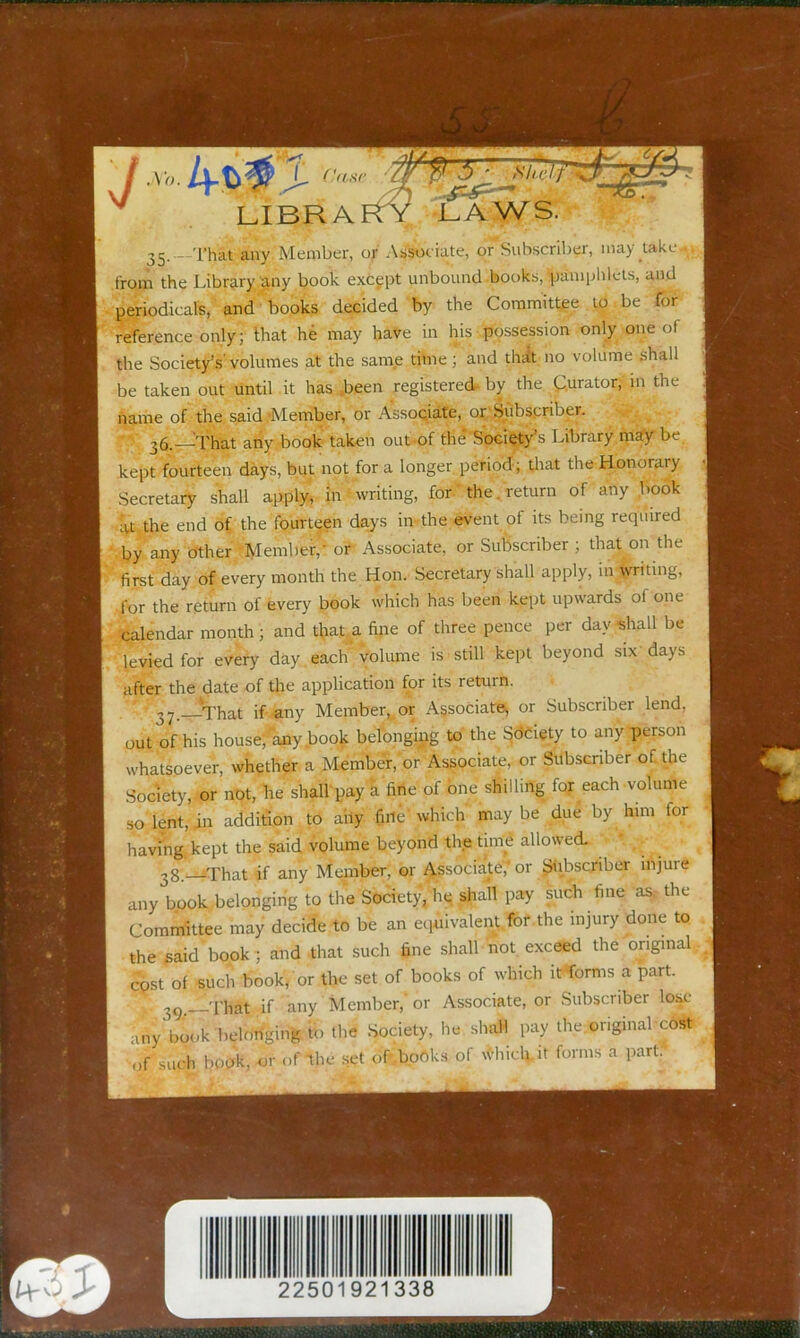 No. Case Shelf
LIBRARY LAWS.
35.—That any Member, or Associate, or Subscriber, may take
from the Library any book except unbound books, pamphlets, and
periodicals, and books decided by the Committee to be for
reference only; that he may have in his possession only one of
the Society's volumes at the same time; and that no volume shall
be taken out until it has been registered by the Curator, in the
name of the said Member, or Associate, or Subscriber.
36.—That any book taken out of the Society's Library may be
kept fourteen days, but not for a longer period; that the Honorary
Secretary shall apply, in writing, for the return of any book
at the end of the fourteen days in the event of its being required
by any other Member, or Associate, or Subscriber; that on the
first day of every month the Hon. Secretary shall apply, in writing,
for the return of every book which has been kept upwards of one
calendar month; and that a fine of three pence per day shall be
levied for every day each volume is still kept beyond six days
after the date of the application for its return.
37.—That if any Member, or Associate, or Subscriber lend,
out of his house, any book belonging to the Society to any person
whatsoever, whether a Member, or Associate, or Subscriber of the
Society, or not, he shall pay a fine of one shilling for each volume
so lent, in addition to any fine which may be due by him for
having kept the said volume beyond the time allowed.
38.—That if any Member, or Associate, or Subscriber injure
any book belonging to the Society, he shall pay such fine as the
Committee may decide to be an equivalent for the injury done to
the said book; and that such fine shall not exceed the original
cost of such book, or the set of books of which it forms a part.
39.—That if any Member, or Associate, or Subscriber lose
any book belonging to the Society, he shall pay the original cost
of such book, or of the set of books of which it forms a part.
22501921338